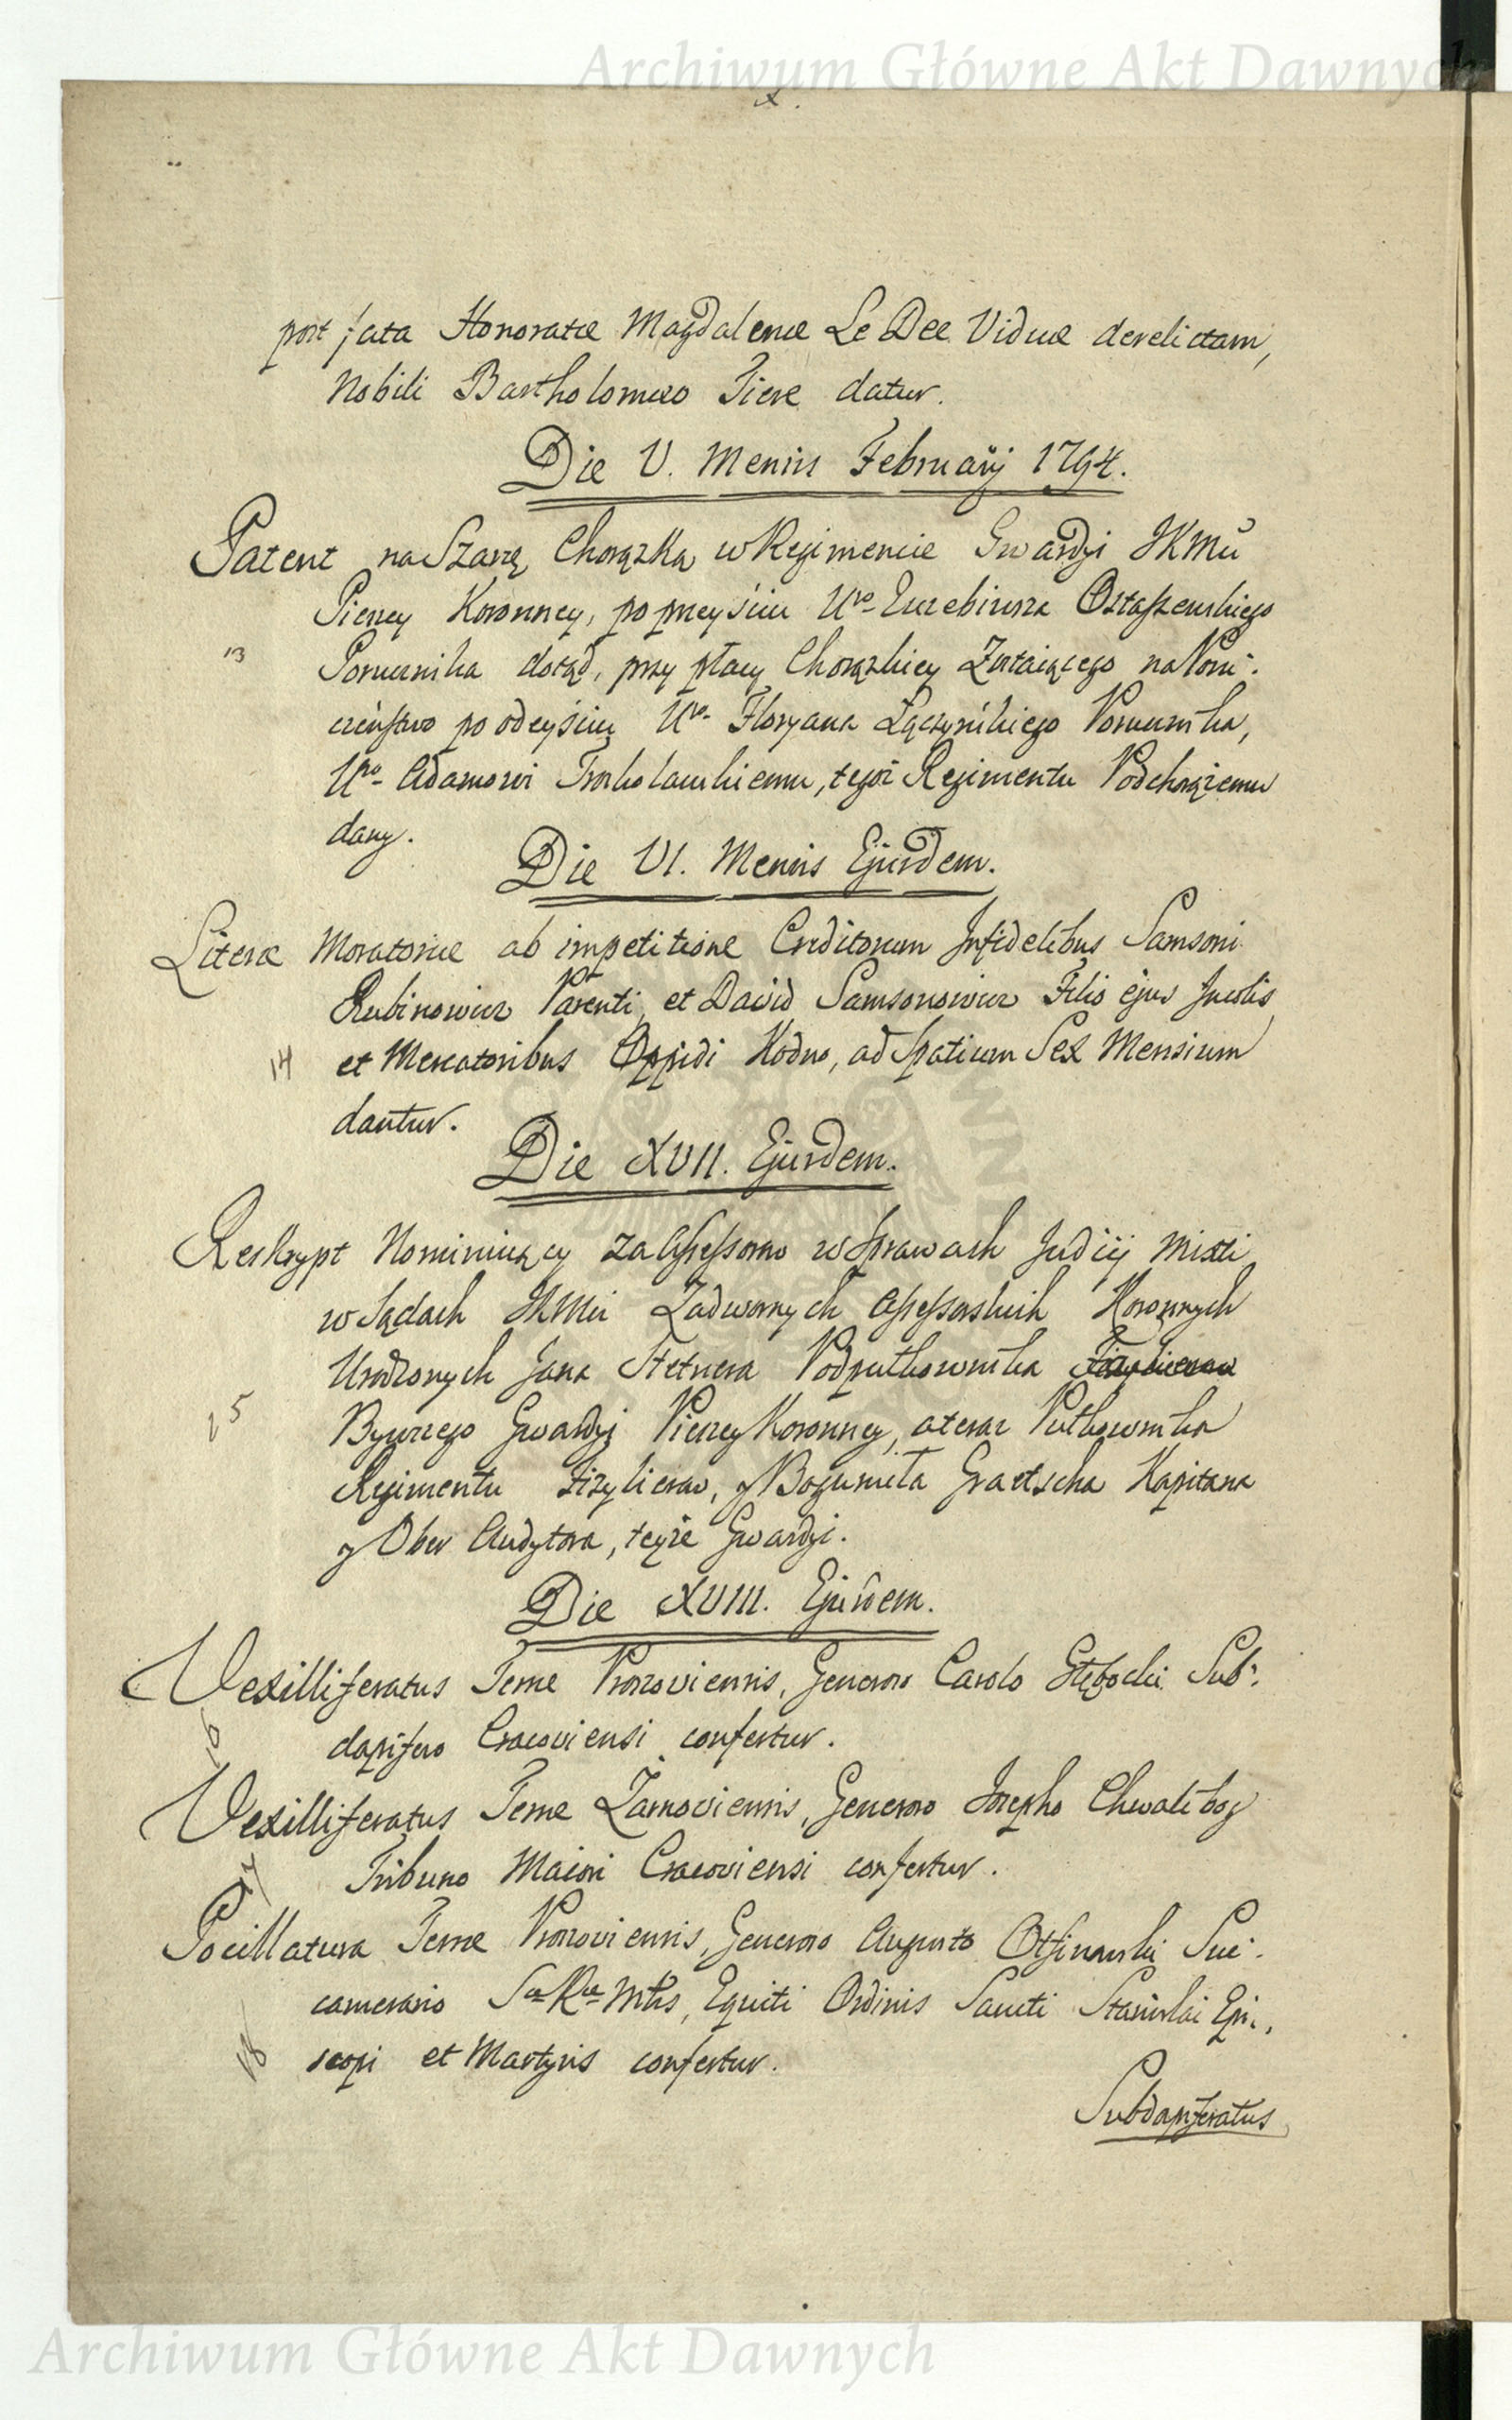 Archiwum Główne Akt Dawnych
post fata Honoratæ Magdalenæ Le Dee Viduæ derelictam,
Nobili Bartholomæo Fiere datur.
Die V. Mensis Februarij 1794.
Patent na Szarżę Chorążka w Regimencie Gwardyi JKMci
Pieszey Koronney, po przeyściu Uro Euzebiusza Ostaszewskiego
13
Porucznika dotąd, przy płacy Chorążkiey Zostaiącego na Poru-
czeństwo po odeyściu Uro Floryana Łączyńskiego Porucznika,
Uro Adamowi Trockolawskiemu, tegoż Regimentu Podchorążemu
dany.
Die VI. Mensis Ejusdem.
Literæ Moratoriæ ab impetitione Creditorum Infidelibus Samsoni
Rubinowicz Parenti, et David Samsonowicz Filio ejus Incolis
14
et Mercatoribus Oppidi Kodno, ad Spatium Sex Mensium
dantur.
Die XVII. Ejusdem.
Reskrypt Nominuiący za Assessorow w Sprawach Judicij Mixti
w Sądach JKMci Zadwornych Assessorskich Koronnych
Urodzonych Jana Stetnera Podpułkownika
15
Bywszego Gwardyi Pieszey Koronney, a teraz Pułkownika
Regimentu Fizylierow, y Bogumiła Graetscha Kapitana
y Ober Audytora, teyże Gwardyi.
Die XVIII. Ejusdem.
Vexilliferatus Terræ Proszoviensis, Generoso Carolo Głębocki Sub-
16
dapifero Cracoviensi confertur.
Vexilliferatus Terræ Żarnoviensis, Generoso Josepho Chwalibog
17
Tribuno Maiori Cracoviensi confertur.
Pocillatura Terræ Proszoviensis, Generoso Augusto Otfinowski Suc-
camerario Sæ Ræ Mtis, Equiti Ordinis Sancti Stanislai Epi-
18
scopi et Martyris confertur.
Subdapiferatus
Archiwum Główne Akt Dawnych